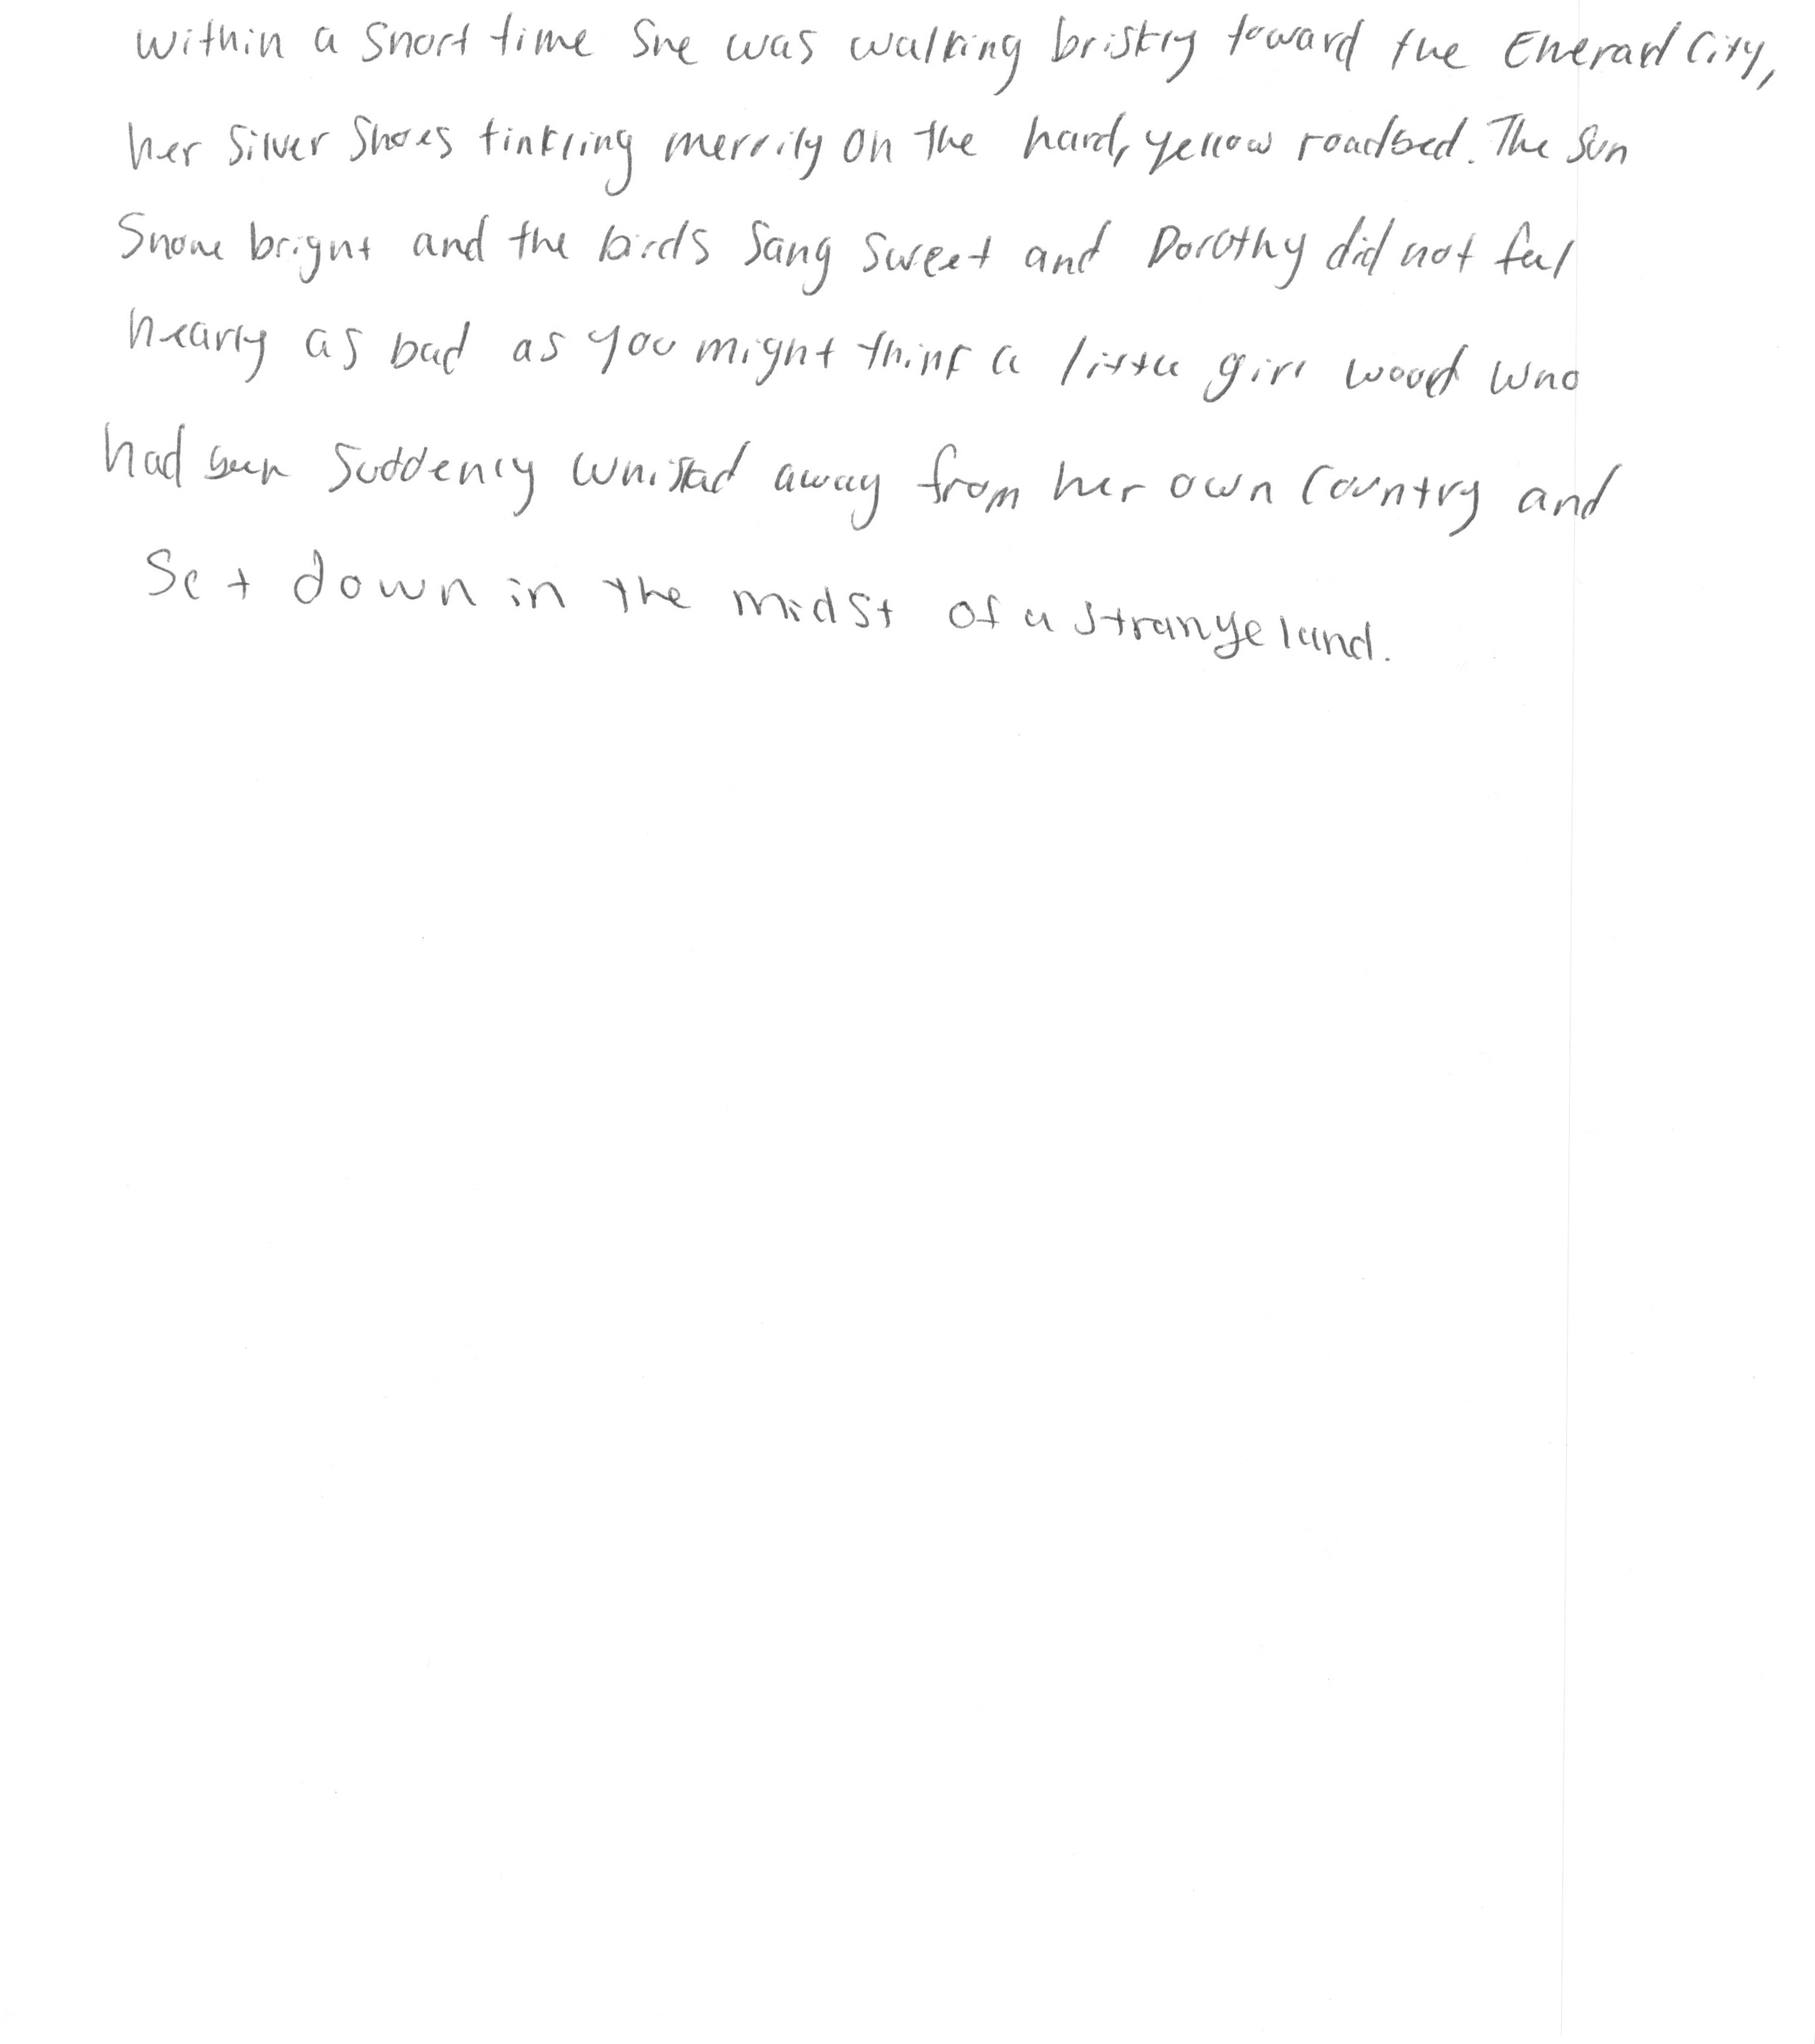 Within a short time she was walking briskly toward the Emerald City,
her Silver Shoes tinkling merrily on the hard, yellow roadbed. The sun
shone bright and the birds sang sweet and Dorothy did not feel
nearly as bad as you might think a little girl would who
had been suddenly whisked away from her own country and
set down in the midst of a strange land.